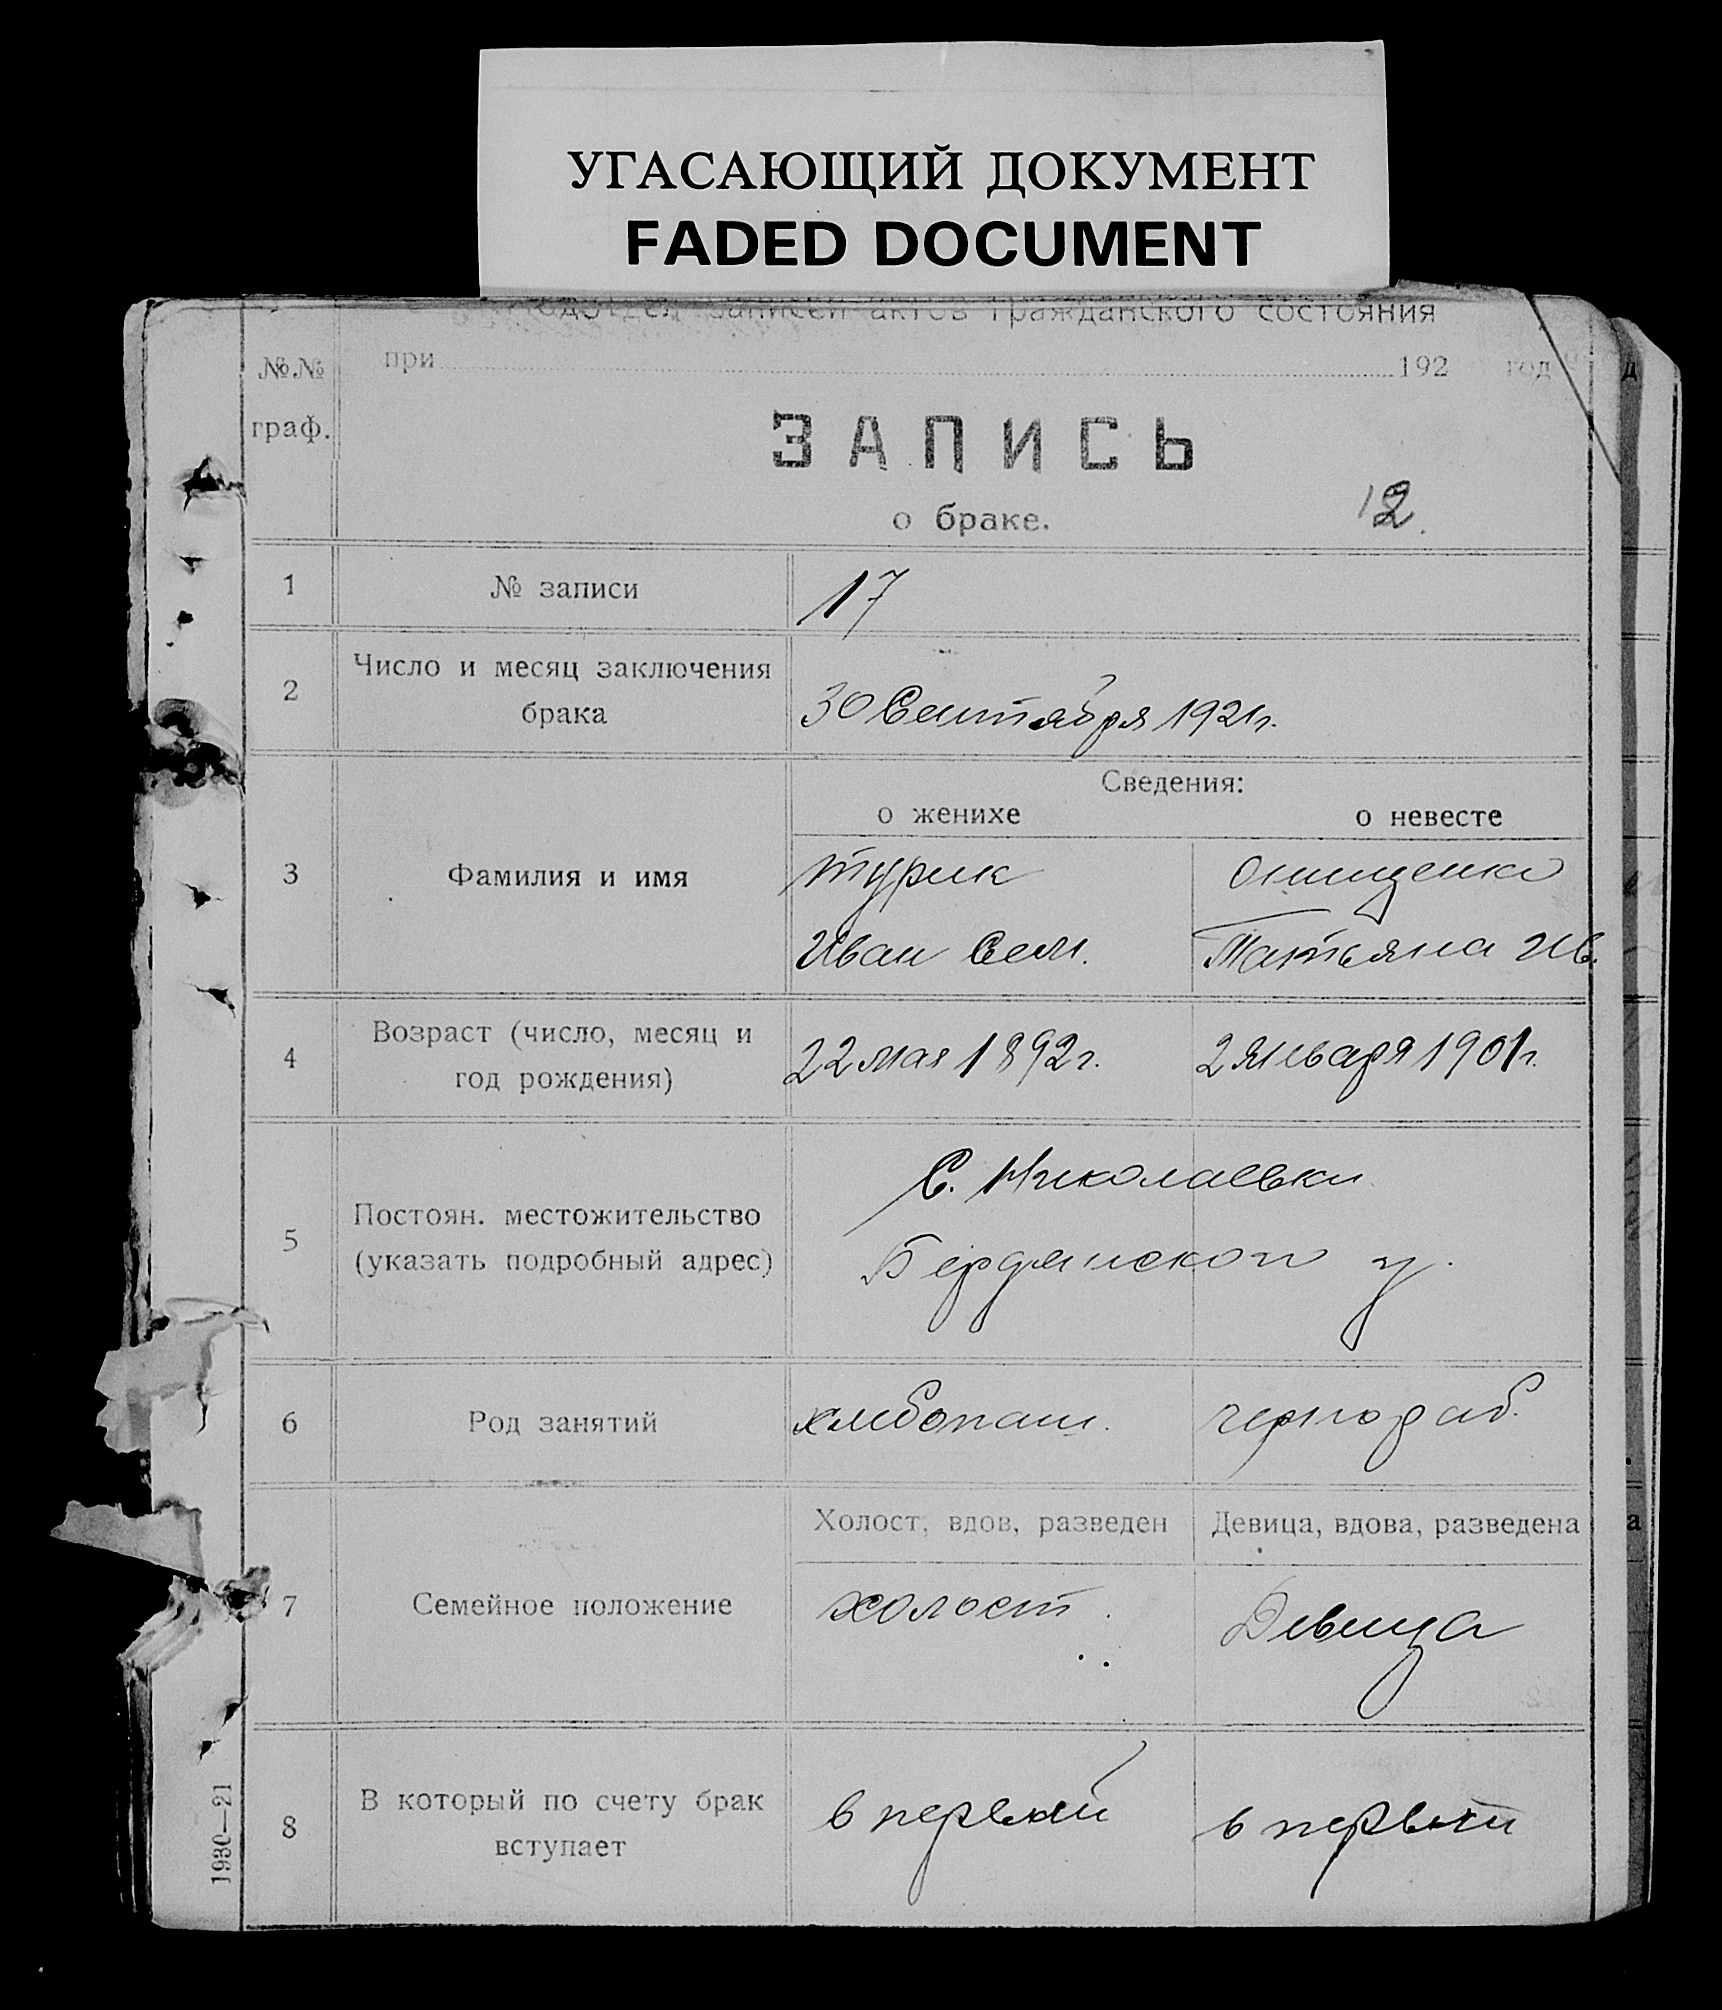 УГАСАЮЩИЙ ДОКУМЕНТ
FADED DOCUMENT
записей актов гражданского состояния
№№ граф.
при 192 год
ЗАПИСЬ
о браке.
12
1
№ записи
17
2
Число и месяц заключения
брака
30 Сентября 1921 г.
Сведения:
о женихе
о невесте
3
Фамилия и имя
Турик
Иван Сем.
Онищенко
Татьяна Ив.
4
Возраст (число, месяц и
год рождения)
22 мая 1892 г.
2 января 1901 г.
5
Постоян. местожительство
(указать подробный адрес)
С. Николаевки
Бердянского у.
6
Род занятий
хлебопаш.
чернораб.
7
Семейное положение
Холост, вдов, разведен
Девица, вдова, разведена
холост.
Девица
8
В который по счету брак
вступает
в первый
в первый
1930—21